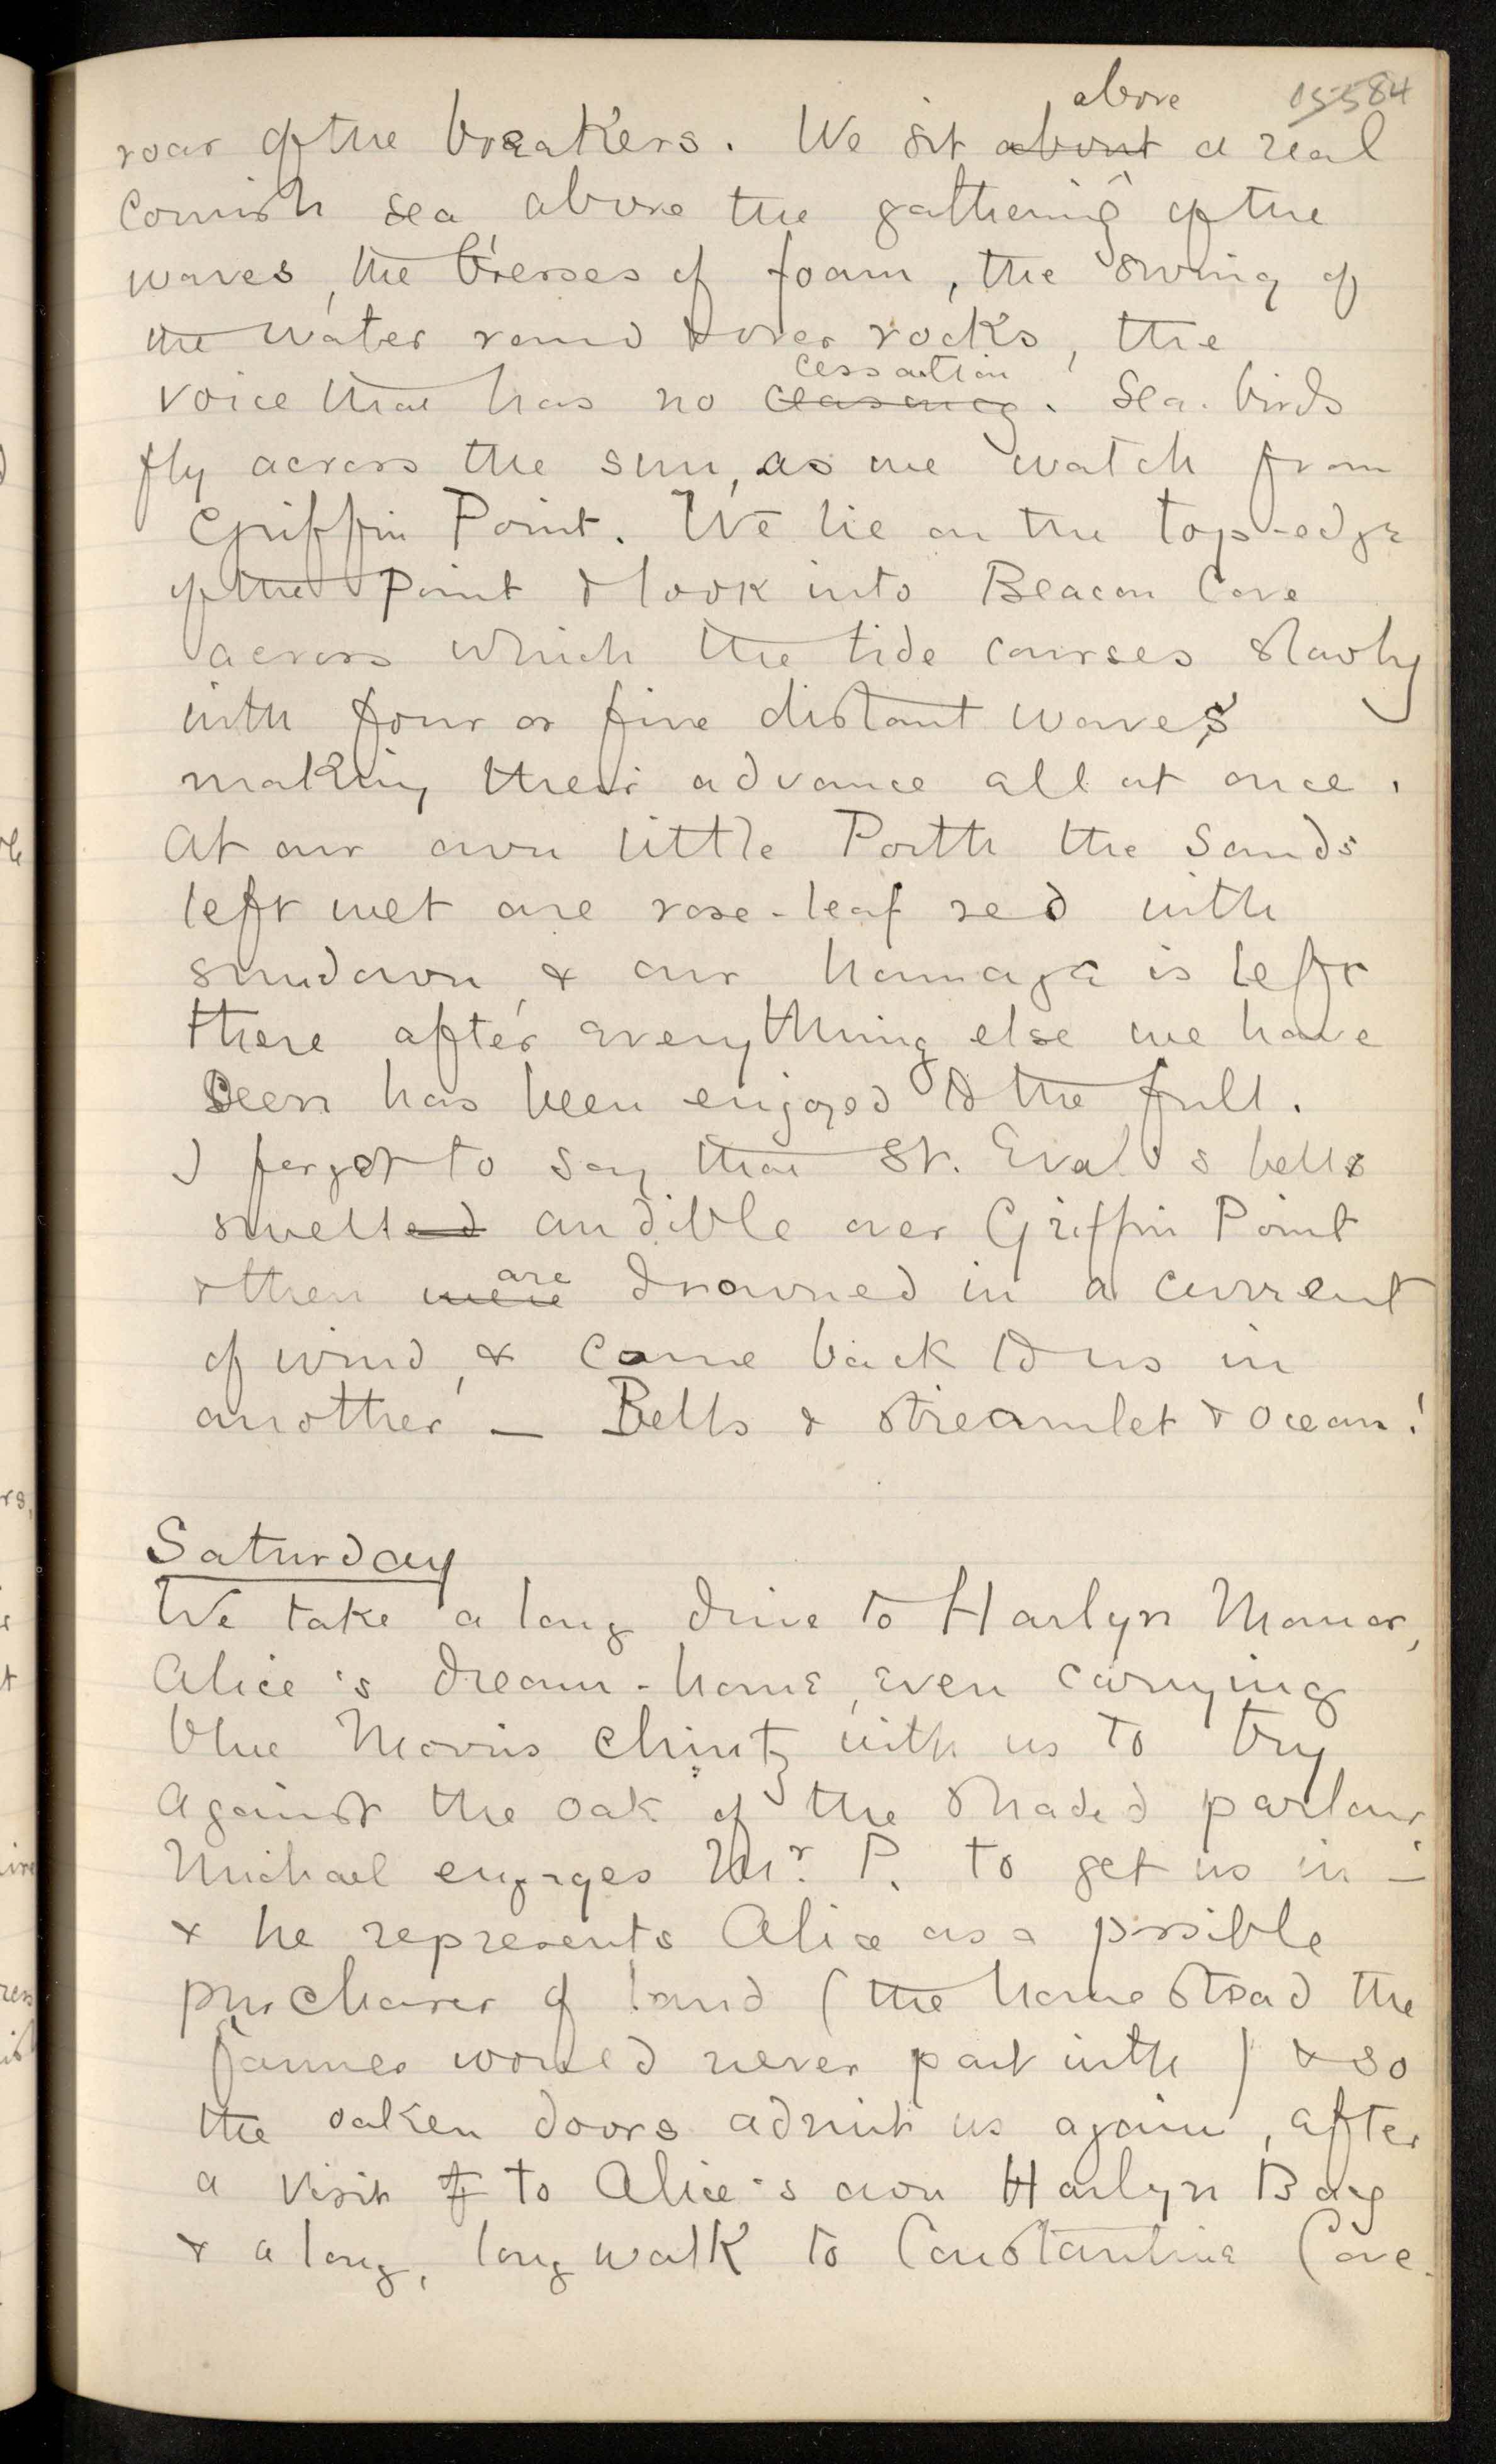 15584
above
roar of the breakers. We sit about a real
Cornish sea, above the gathering of the
waves, the tresses of foam, the swing of
the water round & over rocks, the
cessation
voice that has no ceasency. Sea-birds
fly across the sun, as we watch from
Griffin Point. We lie on the top-edge
of the Point & look into Beacon Cove
across which the tide courses slowly
with four or five distant waves
making their advance all at once.
At our own little Porth the sands
left wet are rose-leaf red with
sundown, & our homage is left
there after everything else we have
seen has been enjoyed to the full.
I forgot to say that St. Eval's bells
swelled audible over Griffin Point
are
& then were drowned in a current
of wind, & come back to us in
another — Bells & streamlet & ocean!
Saturday
We take a long drive to Harlyn Manor,
Alice's dream-home, even carrying
blue Morris chintz with us to try
against the oak of the shaded parlour.
Michael engages Mr. P. to get us in —
& he represents Alice as a possible
purchaser of land (the homestead the
farmer would never part with) & so
the oaken doors admit us again, after
a visit to Alice's own Harlyn Bay
& a long, long walk to Constantine Cove.